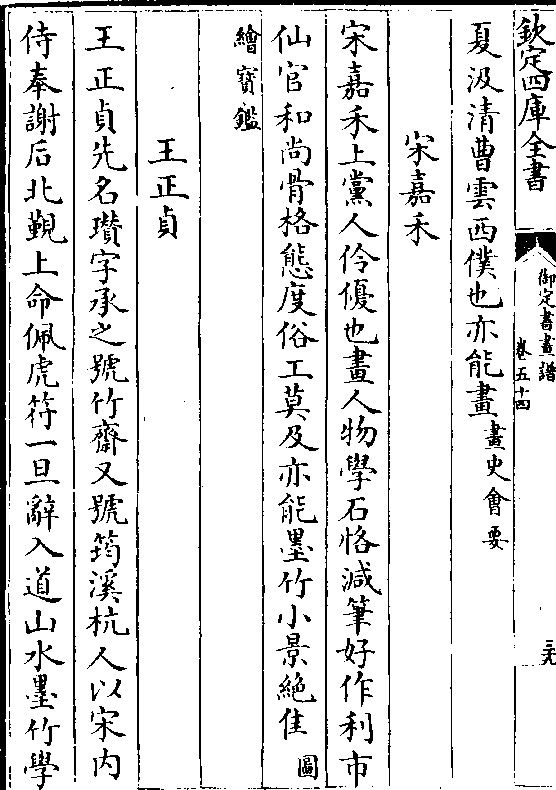 欽定四庫全書
御定書畫譜
卷五十四
三九
夏汲清曹雲西僕也亦能畫畫史會要
宋嘉禾
宋嘉禾上黨人伶優也畫人物學石恪減筆好作利市
仙官和尚骨格態度俗工莫及亦能墨竹小景絶佳圖
繪寶鑑
王正貞
王正貞先名瓚字承之號竹齋又號筠溪杭人以宋内
侍奉謝后北覲上命佩虎符一旦辭入道山水墨竹學